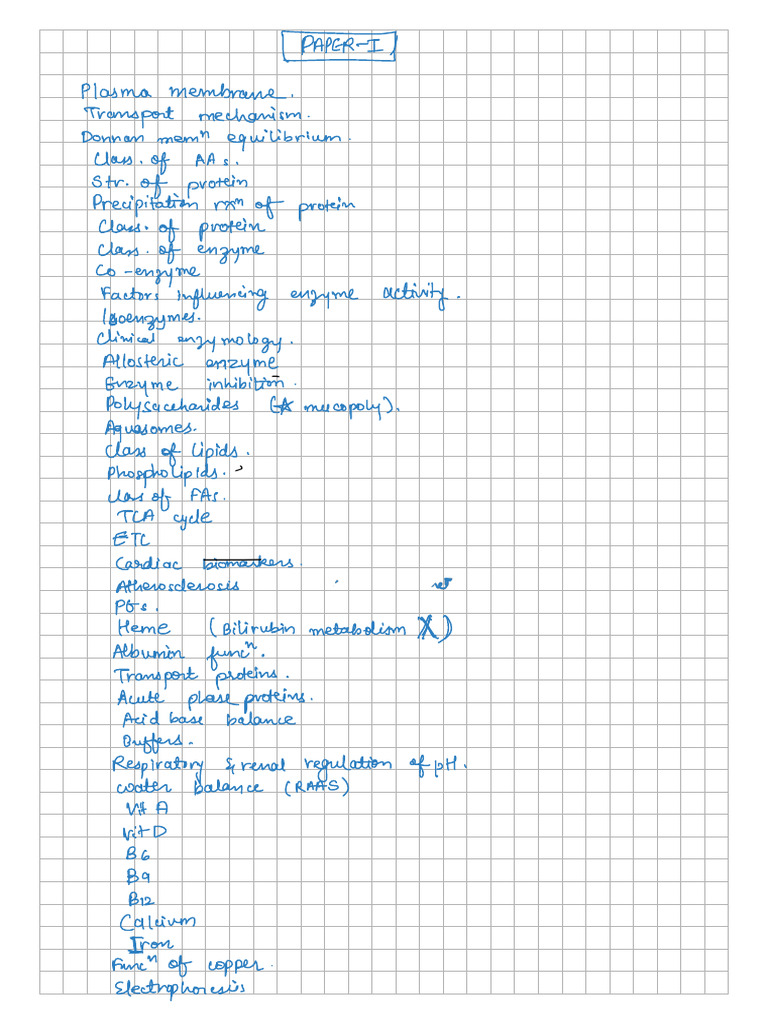 PAPER-I
Plasma membrane.
Transport mechanism.
Donnan memⁿ equilibrium.
Class. of AAs.
Str. of protein
Precipitation rxⁿ of protein
Class. of protein
Class. of enzyme
Co-enzyme
Factors influencing enzyme activity.
Isoenzymes.
Clinical enzymology.
Allosteric enzyme
Enzyme inhibition.
Polysaccharides ( mucopoly).
Aquasomes.
Class of lipids.
Phospholipids.
Clas of FAs.
TCA cycle
ETC
Cardiac biomarkers.
Atherosclerosis
PGs.
Heme (Bilirubin metabolism X)
Albumin funcⁿ.
Transport proteins.
Acute phase proteins.
Acid base balance
Buffers.
Respiratory & renal regulation of pH.
water balance (RAAS)
Vit A
Vit D
B6
B9
B12
Calcium
Iron
Funcⁿ of copper.
Electrophoresis